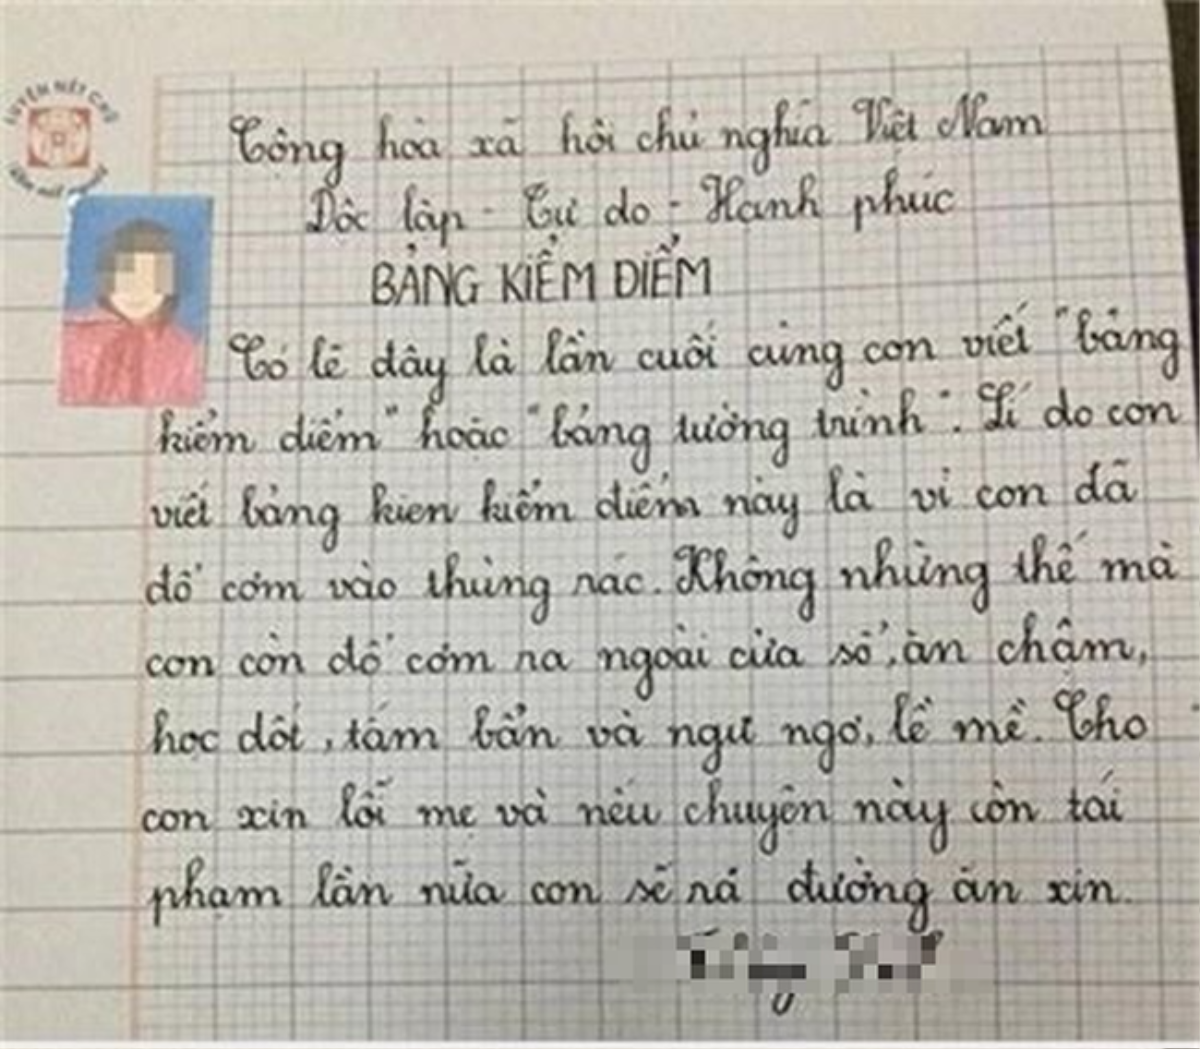 LUYỆN NÉT CHỮ
Cộng hòa xã hôi chủ nghĩa Việt Nam
Dôc lâp - Tự do - Hanh phúc
BẢNG KIỂM ĐIỂM
Có lẽ dây là lần cuối cùng con viết "bảng
kiểm diểm" hoặc "bảng tường trình". Lí do con
viết bảng kien kiểm diểm này là vì con đã
dổ cơm vào thùng rác. Không những thế mà
con còn dổ cơm ra ngoài cửa sổ, ăn châm,
học dốt, tắm bẩn và ngư ngơ, lề mề. Cho
con xin lỗi mẹ và nếu chuyện này còn tái
phạm lần nữa con sẽ rá đường ăn xin.